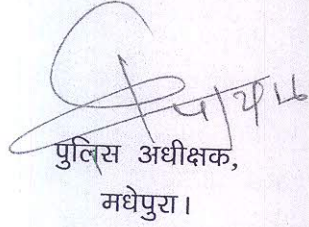 पुलिस अधीक्षक,
मधेपुरा।